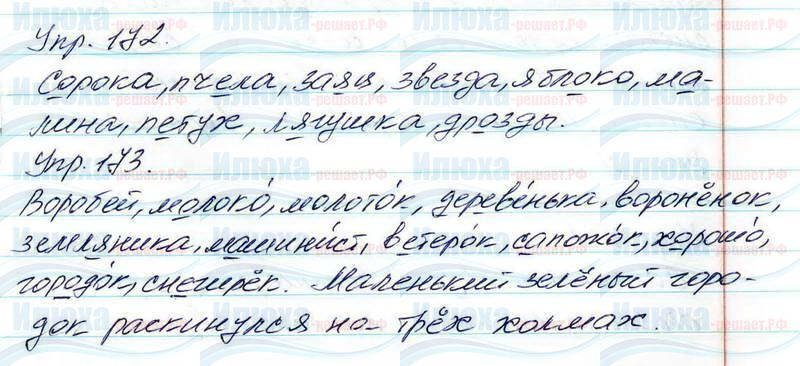 Упр. 172.
Сорока, пчела, заяц, звезда, яблоко, ма-
лина, петух, лягушка, дрозды.
Упр. 173.
Воробей, молоко́, молото́к, дереве́нька, воронёнок,
земляника, машини́ст, ветеро́к, сапожо́к, хорошо́,
городо́к, снегирёк. Маленький зелёный горо-
док раскинулся на трёх холмах.